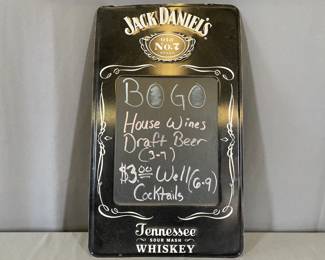 JACK DANIEL'S
OLD
No. 7
BRAND
BOGO
House Wines
Draft Beer
(3-9)
$3.00 Well (6-9)
Cocktails
Tennessee
SOUR MASH
WHISKEY